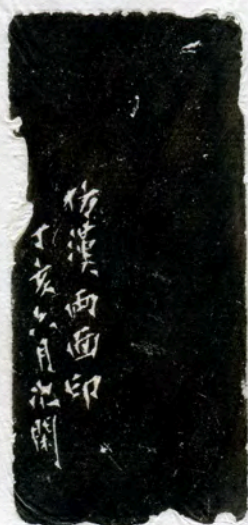 仿漢兩面印
丁亥六月況閑